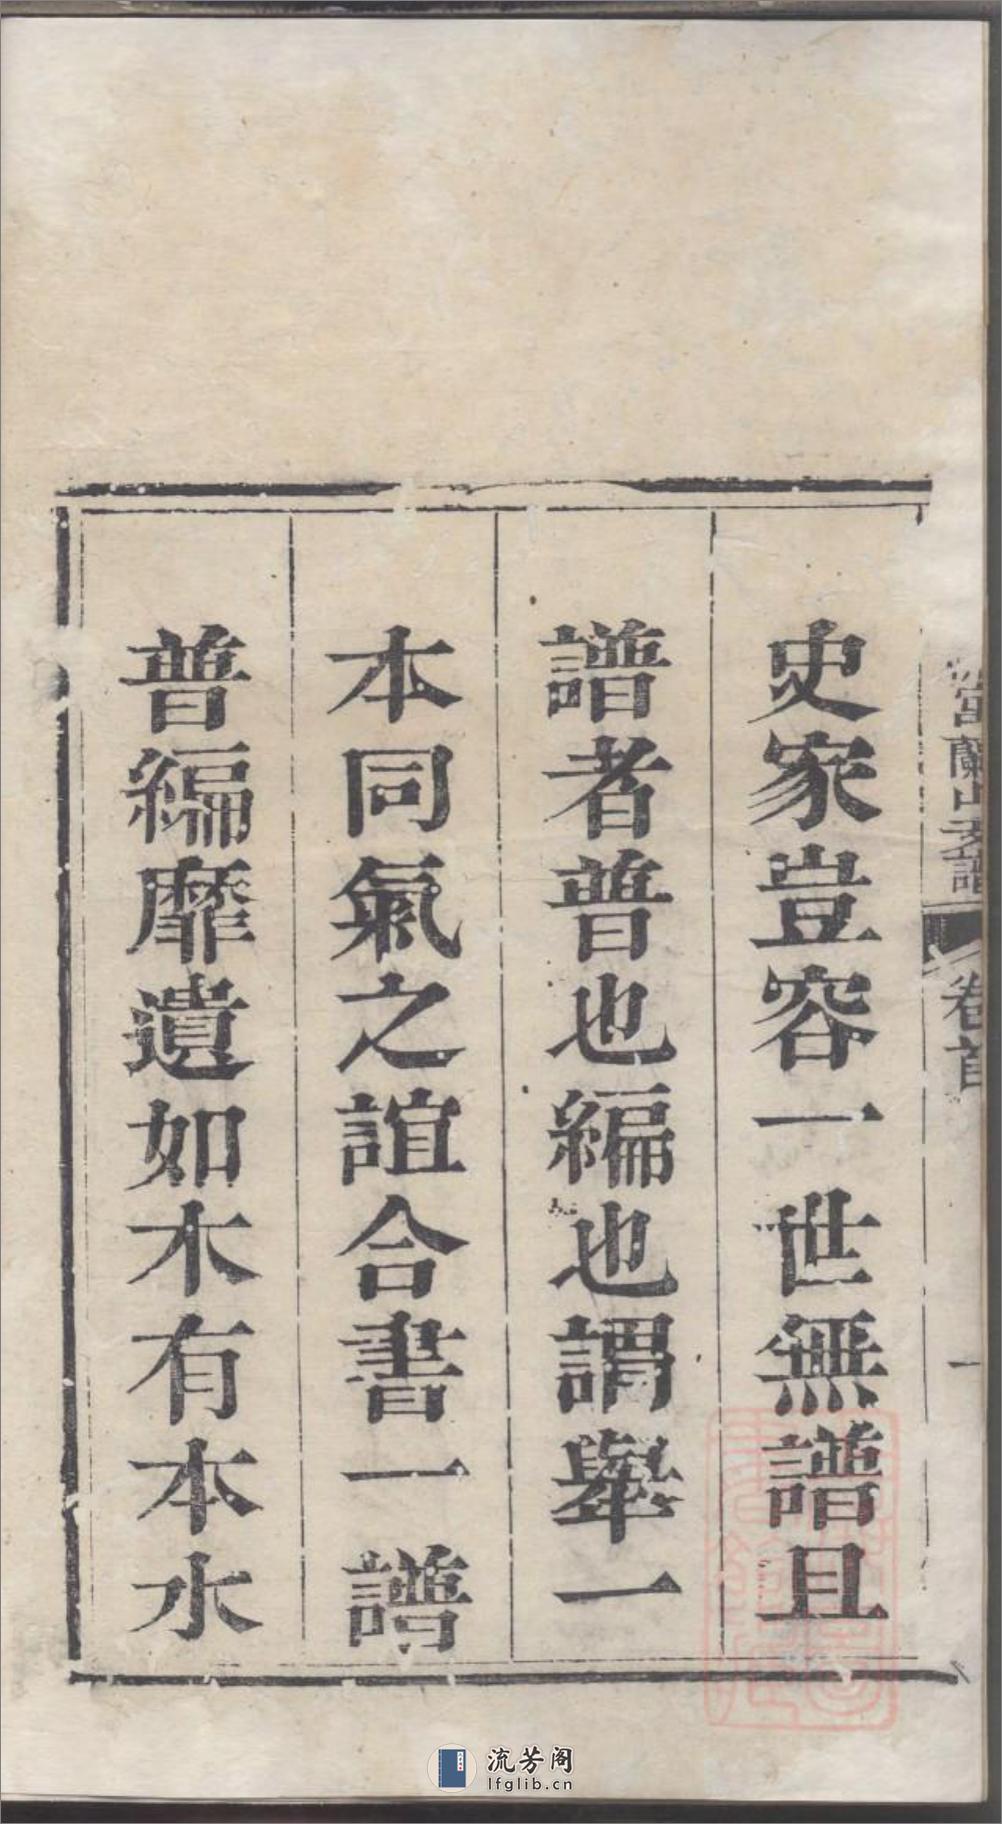 史家豈容一世無譜且
譜者普也編也謂舉一
本同氣之誼合書一譜
普編靡遺如木有本水
蘭山支譜
卷首
一
流芳阁
lfglib.cn